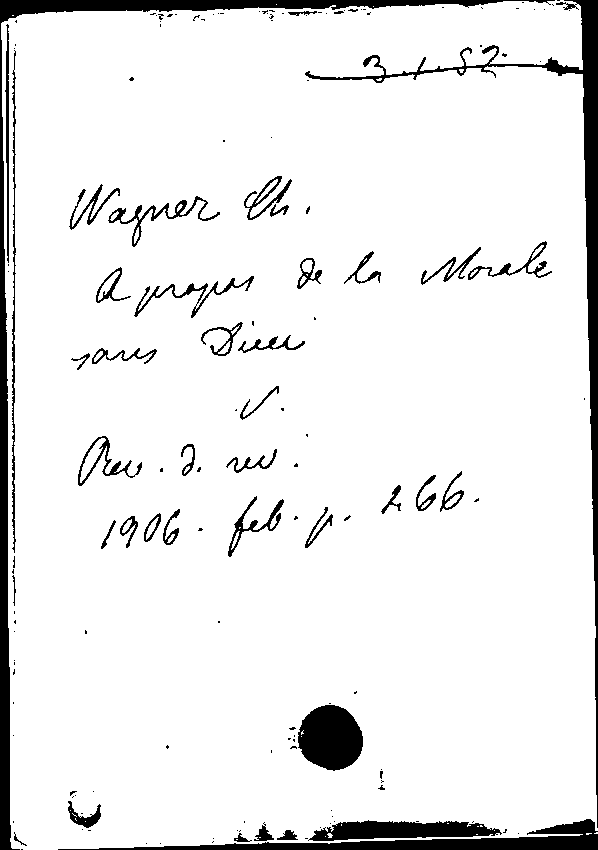 3.1.52
Wagner Ch.
A propos de la Morale
sans Dieu
V.
Rev. d. rev.
1906. feb. p. 266.